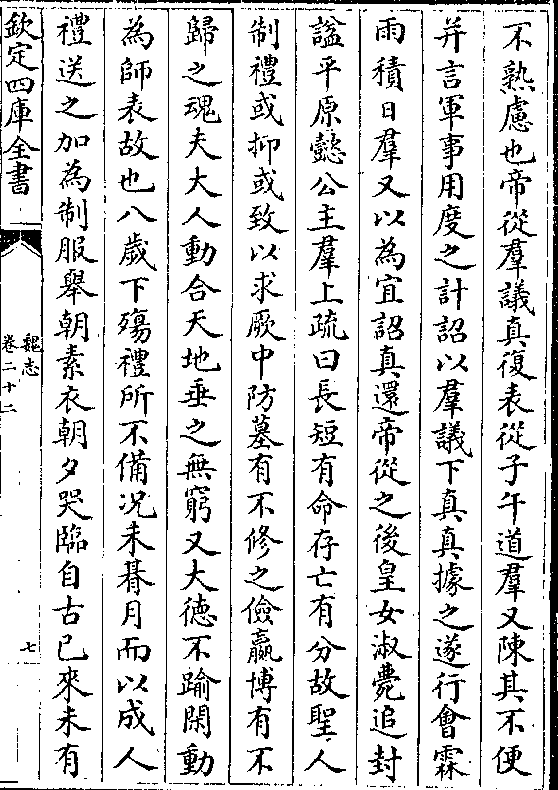 不熟慮也帝從羣議真復表從子午道羣又陳其不便
并言軍事用度之計詔以羣議下真真據之遂行會霖
雨積日羣又以為宜詔真還帝從之後皇女淑薨追封
諡平原懿公主羣上疏曰長短有命存亡有分故聖人
制禮或抑或致以求厥中防墓有不修之儉嬴博有不
歸之魂夫大人動合天地垂之無窮又大德不踰閑動
為師表故也八歲下殤禮所不備况未朞月而以成人
禮送之加為制服舉朝素衣朝夕哭臨自古已來未有
欽定四庫全書
魏志
卷二十二
七